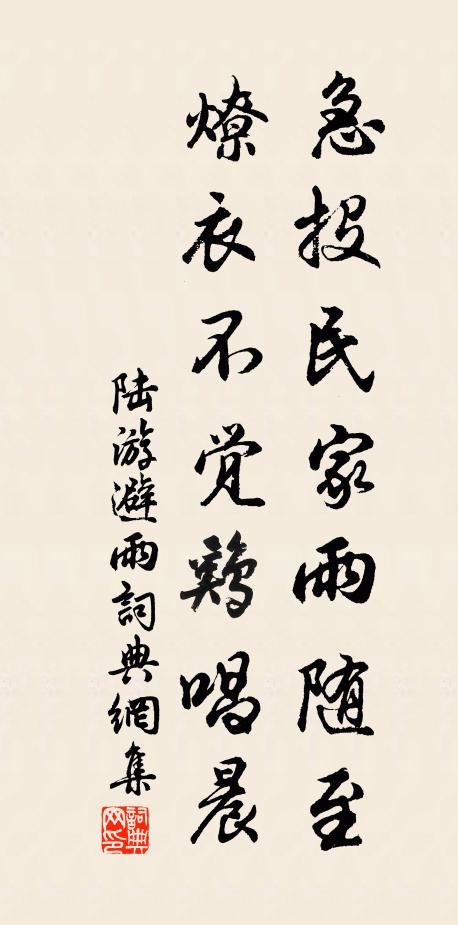 急投民家雨随至
燎衣不觉鷄唱晨
陆游避雨詞典網集
詞典
网印